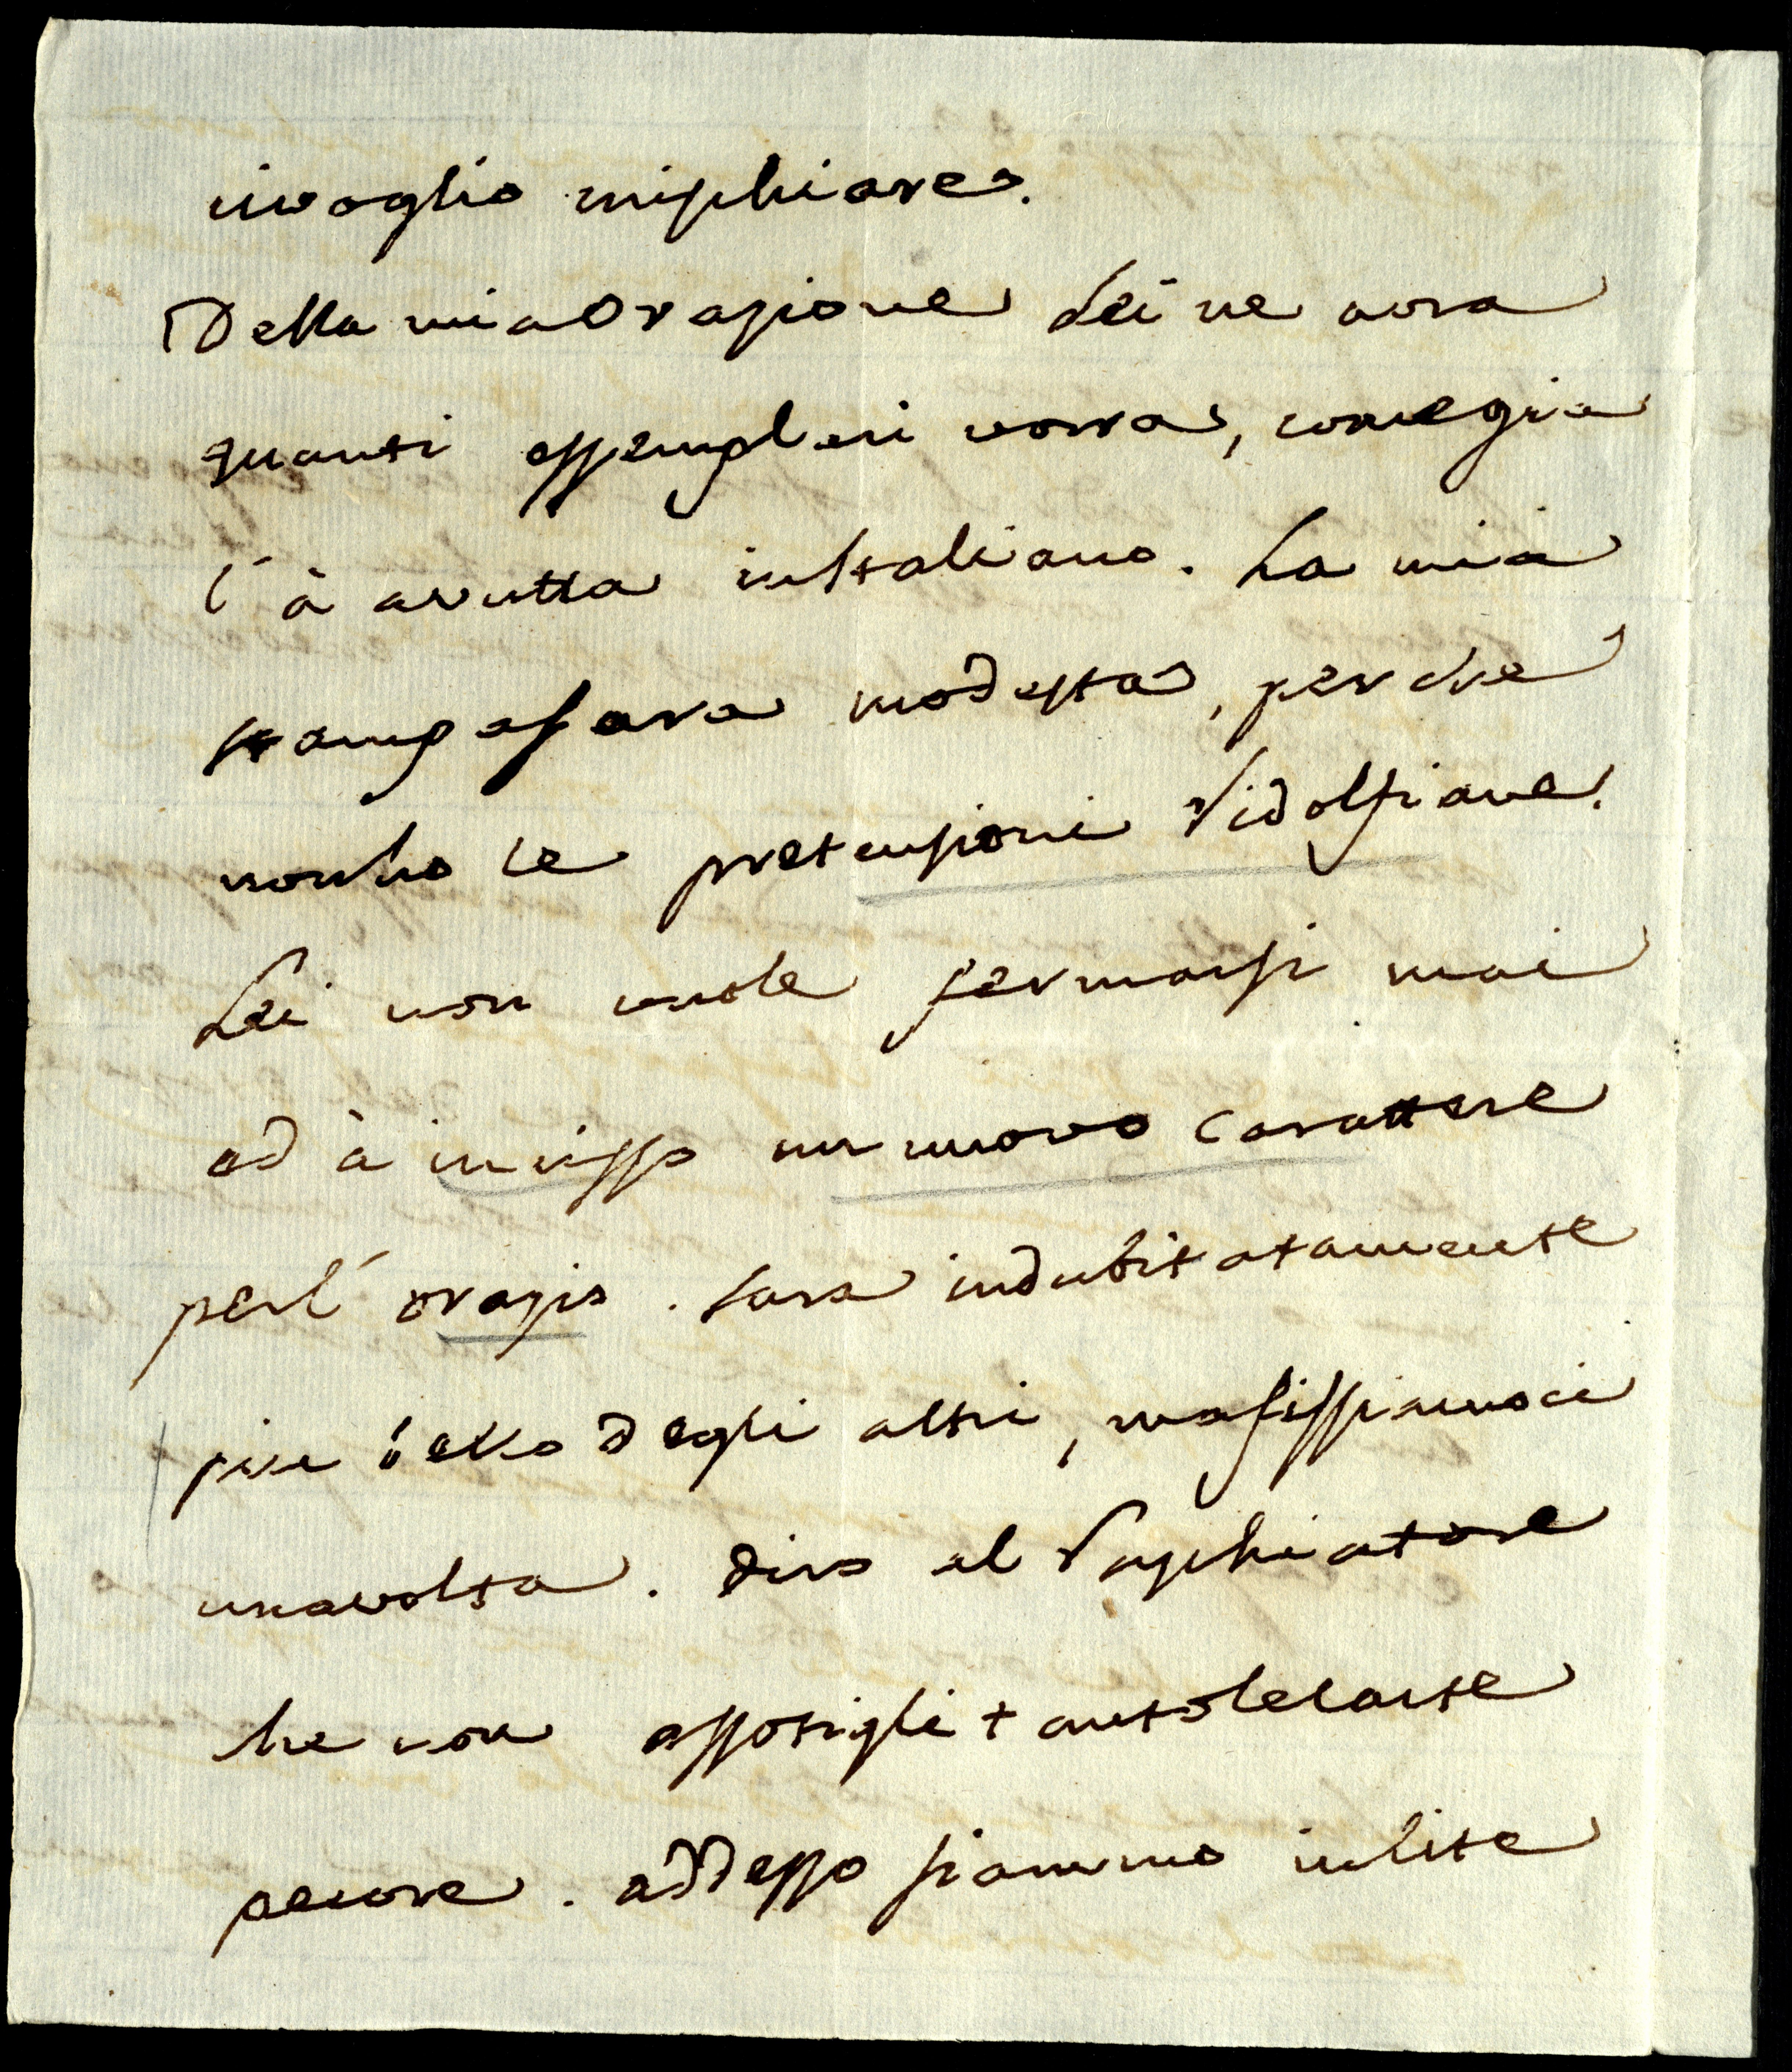 ci voglio mischiare.
Della mia Orazione Lei ne avra
quanti essemplari vorra, come gia
l' à avutta in Italiano. La mia
stampa sara modesta, perche
non ho le pretensioni Ridolfiane.
Lei non vuole fermarsi mai
ed à inciso un nuovo Carattere
per l' orazio. sara indubitatamente
piu bello degli altri, ma fissiamoci
una volta. diro al Raschiatore
che non assotigli tanto le carte
pecore. addesso siammo in lite